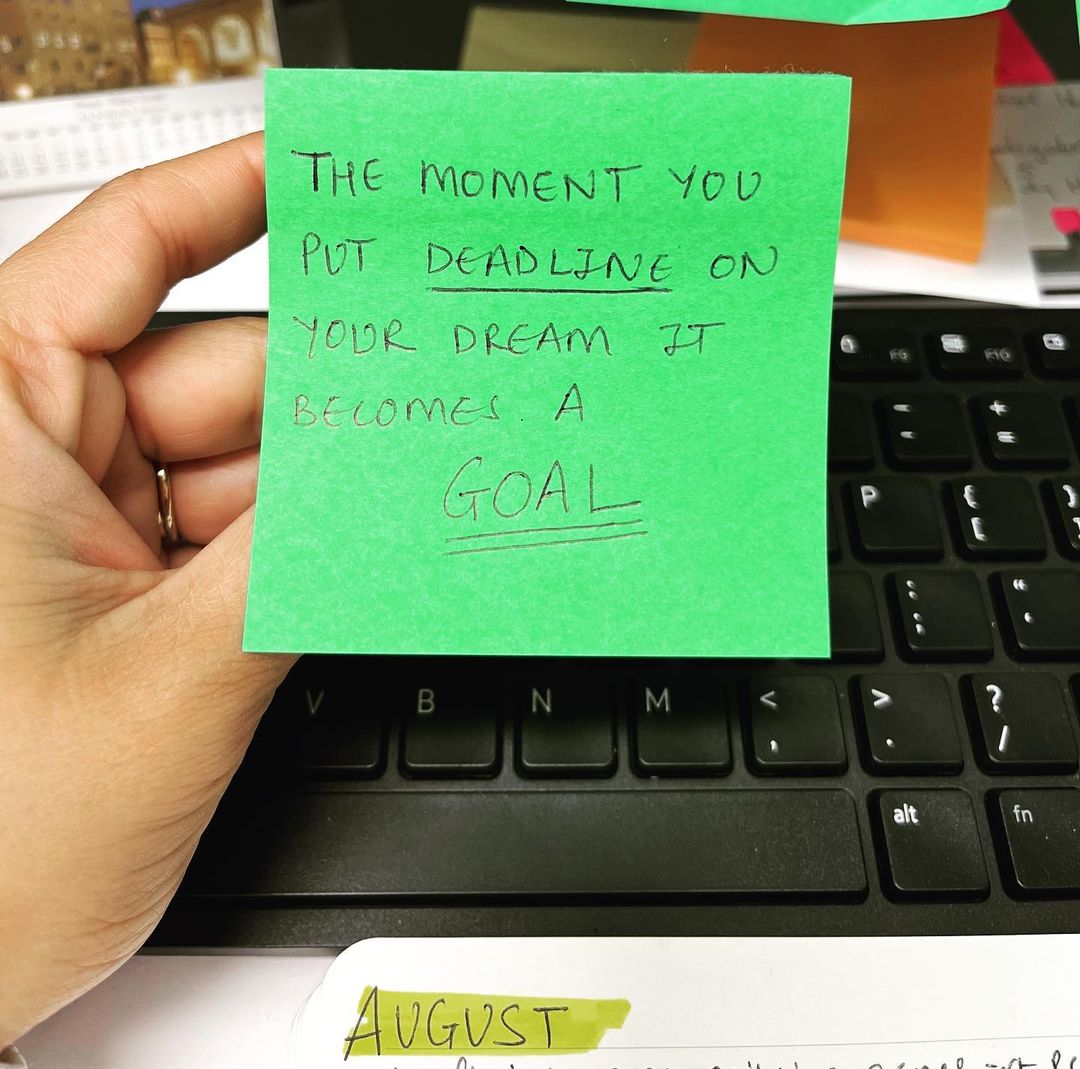 THE MOMENT YOU
PUT DEADLINE ON
YOUR DREAM IT
BECOMES. A
GOAL
F9
F10
P
{
[
}
]
:
;
"
'
V
B
N
M
<
,
>
.
?
/
alt
fn
AUGUST